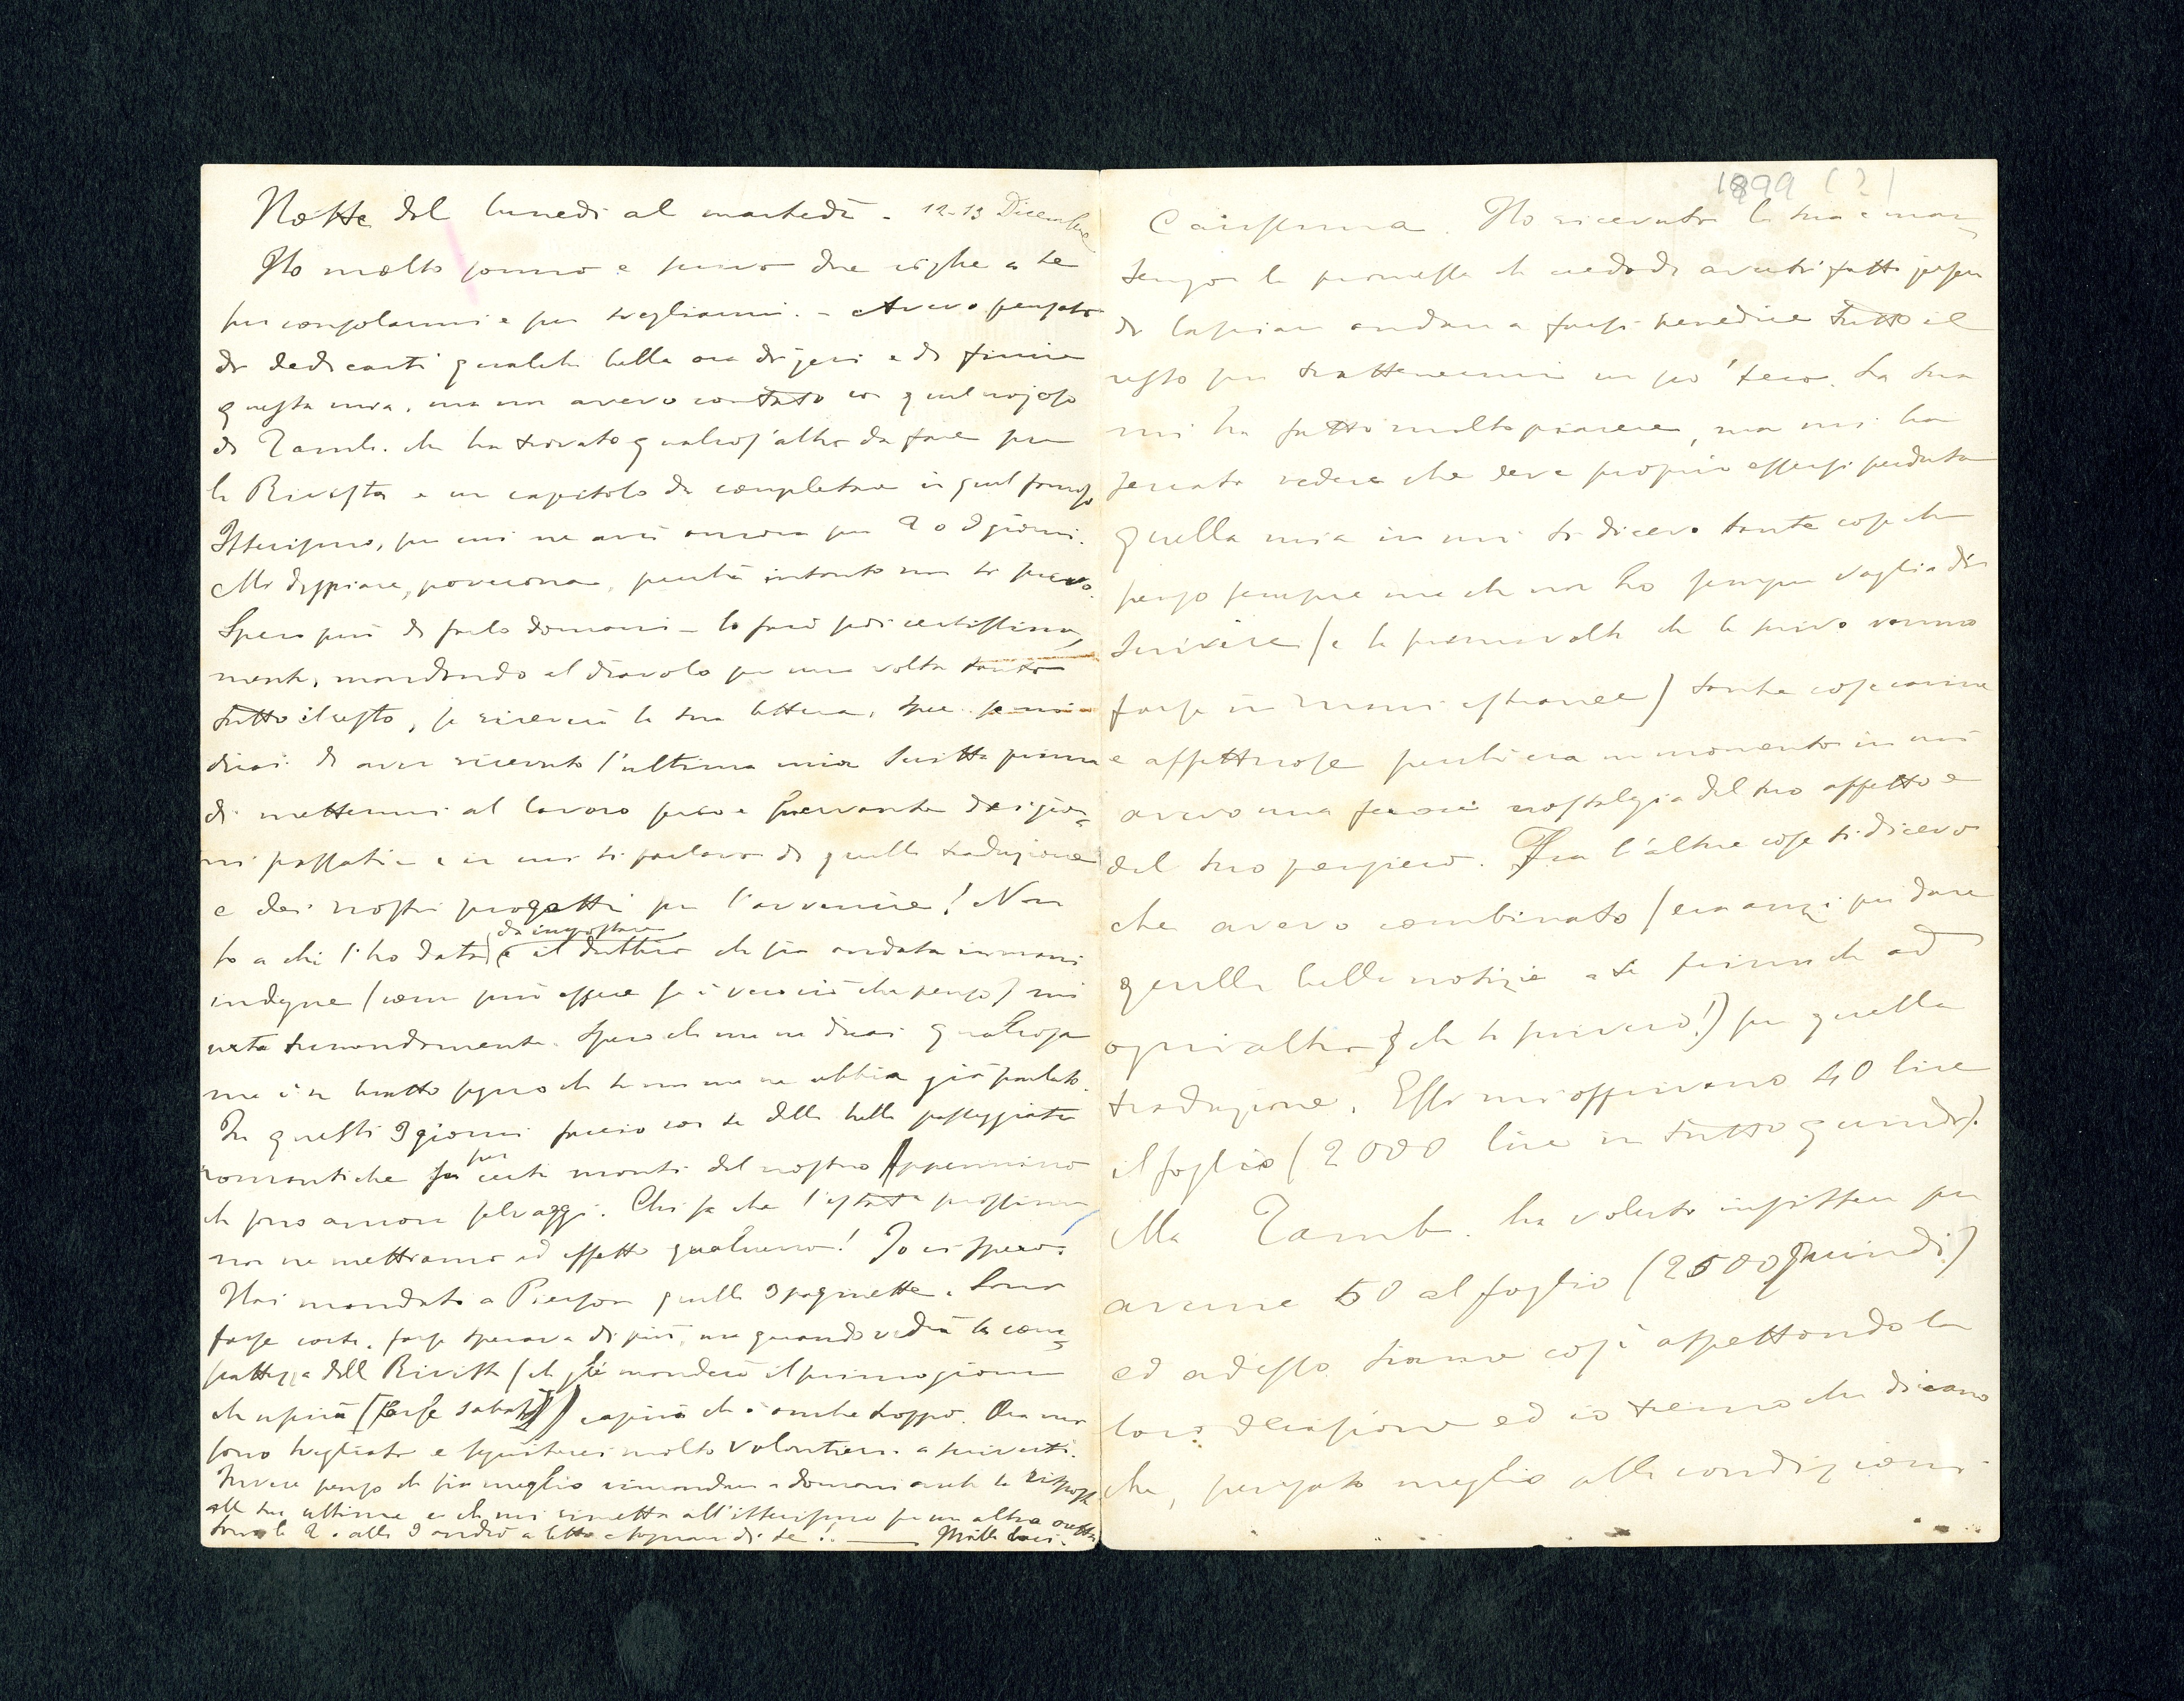 Notte dal lunedì al martedì - 12-13 Dicembre
Ho molto sonno e scrivo due righe a te
per consolarmi e per svegliarmi. - Avevo pensato
di dedicarti qualche bella ora di jeri e di finire
questa mia, ma non avevo contato con quel nojoso
di Tamb. che ha trovato qualcos'altro da fare per
la Rivista e un capitolo da completare in quel famoso
Itterismo, per cui ne avrò ancora per 2 o 3 giorni.
Mi dispiace, poverona, perchè intanto non ti scrivo.
Spero però di farlo domani - lo farò poi certissima-
mente, mandando al diavolo per una volta tanto
tutto il resto, se riceverò la tua lettera,
dirai di aver ricevuto l'ultima mia scritta prima
di mettermi al lavoro serio e snervante dei gior-
ni passati e in cui ti parlavo di quella traduzione
e dei nostri progetti per l'avvenire! Non
so a chi l'ho data (da impostare) e il dubbio che sia andata in mani
indegne (come può essere se è vero ciò che penso) mi
urta tremendamente. Spero che me ne dirai qualcosa
ma è un brutto segno che tu non me ne abbia già parlato.
In questi 3 giorni facevo con te delle belle passeggiate
romantiche per certi monti del nostro Appennino
che sono ancora selvaggi. Chi sa che l'estate prossima
non ne mettiamo ad effetto qualcuno! Io ci spero.
Hai mandato a Pierson quelle 3 paginette. Sono
forse corte, forse sperava di più, ma quando vedrà la com-
pattezza della Rivista (che gli manderò il primo giorno
che uscirà (forse sabato)) capirà che è anche troppo. Ora mi
sono svegliato e seguiterei molto volontieri a scriverti.
Invece penso che sia meglio rimandare a domani anche la risposta
alla tua ultima e che mi rimetta all'itterismo per un'altra oretta
Sono le 2. alle 3 andrò a letto e sognerò di te! - Mille baci.
1899 (?)
Carissima. Ho ricevuto la tua e man-
tengo la promessa che credo di averti fatto
di lasciar andare a farsi benedire tutto il
resto per trattenermi un po' teco. La tua
mi ha fatto molto piacere, ma mi ha
seccato vedere che deve proprio essersi perduta
quella mia in cui ti dicevo tante cose che
penso sempre ma che non ho sempre voglia di
scrivere (e la prima volta che le scrivo vanno
forse in mani estranee) tante cose carine
e affettuose perchè era un momento in cui
avevo una feroce nostalgia del tuo affetto e
del tuo pensiero. Fra l'altre cose ti dicevo
che avevo combinato (era anzi per dare
quella bella notizia a te prima che ad
ogni altro che ti scrivevo!) per quella
traduzione. Essi mi offrivano 40 lire
il foglio (2000 lire in tutto quindi).
Ma Tamb. ha voluto insistere per
averne 50 al foglio (2500 quindi)
ed adesso siamo così aspettando la
loro decisione ed io temo che dicano
che, pensato meglio alle condizioni